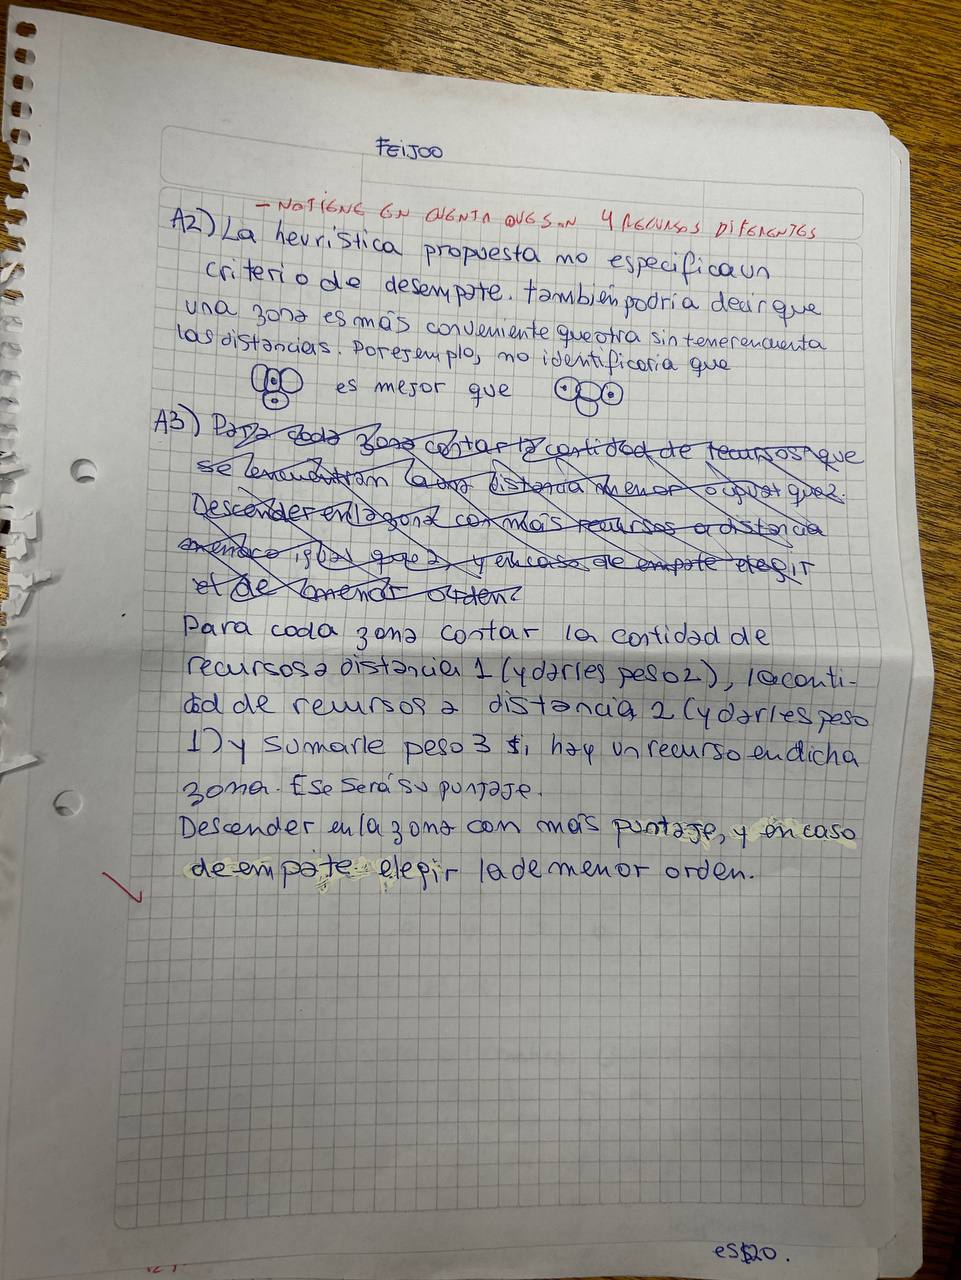 FEIJOO
- NO TIENE EN CUENTA QUE SON 4 RECURSOS DIFERENTES
A2) La heurística propuesta no especifica un
criterio de desempate. también podría decir que
una zona es más conveniente que otra sin tener en cuenta
las distancias. Por ejemplo, no identificaría que
es mejor que
A3) Para cada zona contar la cantidad de recursos que
se encuentran a una distancia menor o igual que 2.
Descender en la zona con más recursos a distancia
menor o igual que 2 y en caso de empate elegir
el de menor orden.
Para cada zona contar la cantidad de
recursos a distancia 1 (y darles peso 2), la canti-
dad de recursos a distancia 2 (y darles peso
1) y sumarle peso 3 si hay un recurso en dicha
zona. Ese será su puntaje.
Descender en la zona con más puntaje, y en caso
de empate elegir la de menor orden.
es $20.